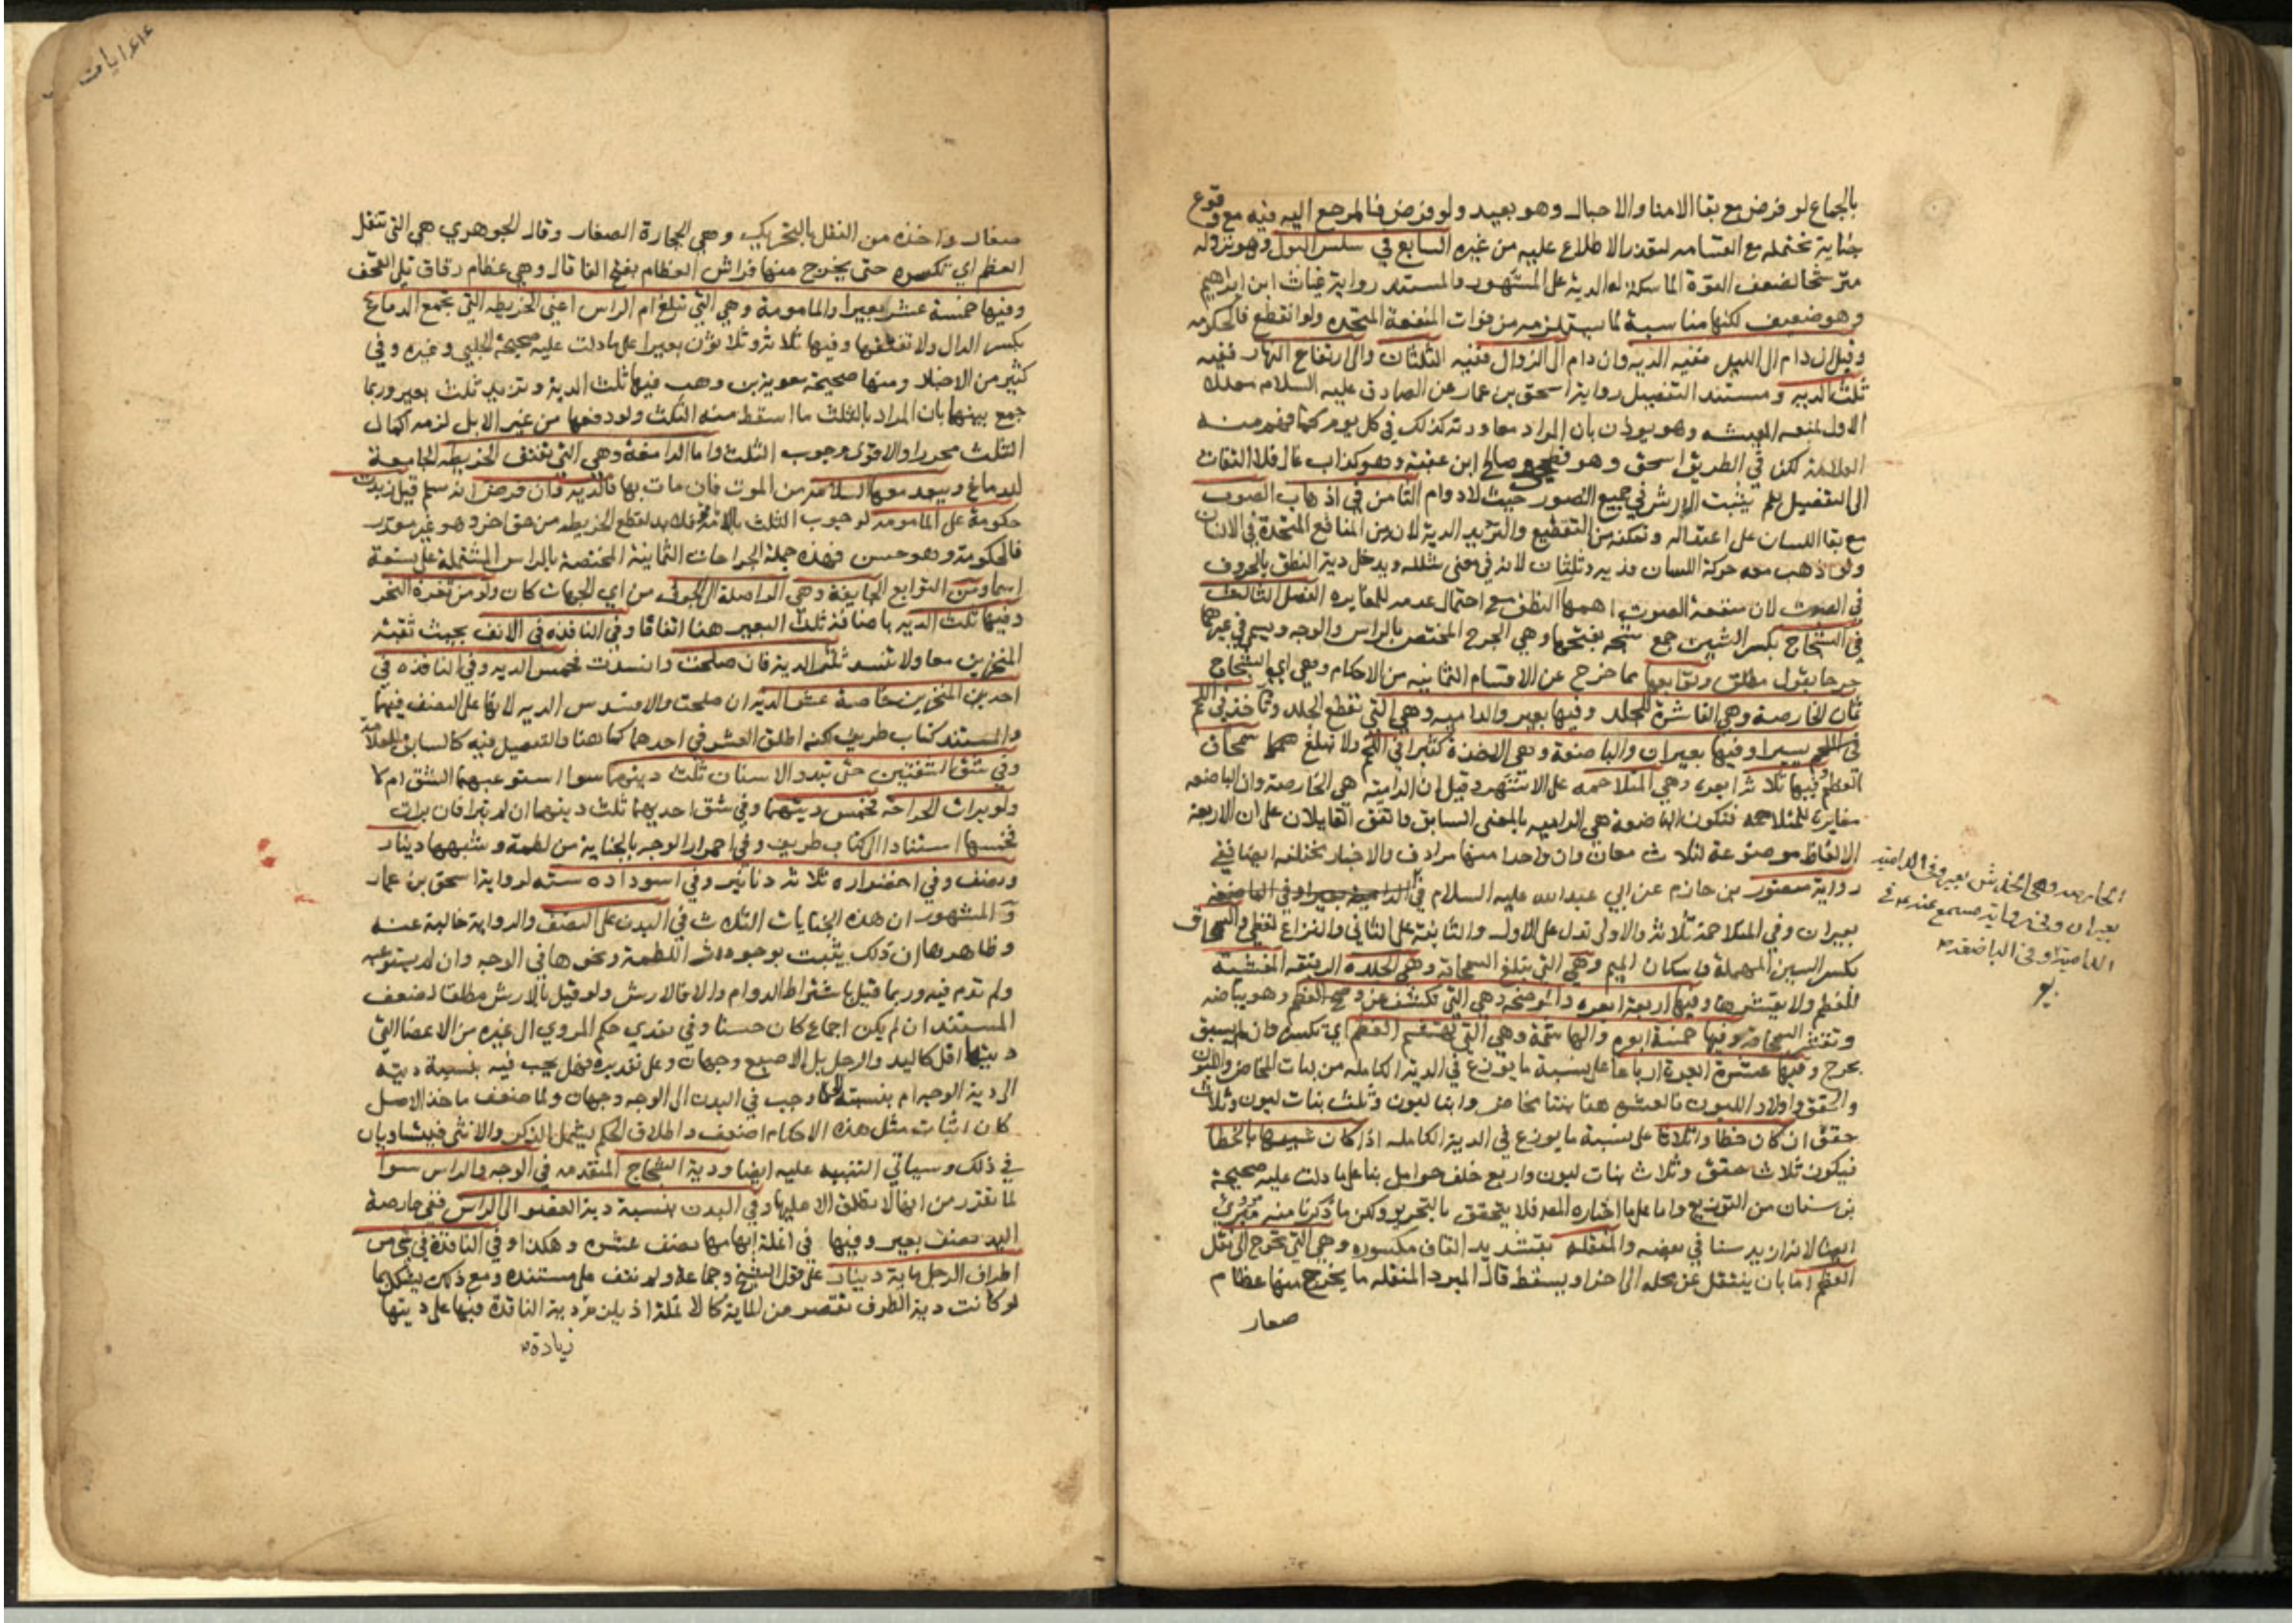 بالجماع لو فرض مع بقا الامنا والاحبال وهو بعيد ولو فرض فالمرجع اليه فيه مع وقوع
جناية تحتمله مع القسامه لتعذر الاطلاع عليه من غيره السابع في سلس البول وهو نزوله
مترشحا لضعف القوة الماسكة له الدية على المشهور والمستند رواية غياث ابن ابراهيم
وهو ضعيف لكنها مناسبة لما يستلزمه من فوات المنفعة المتحده ولو انقطع فالحكومه
وقيل ان دام الى الليل ففيه الديه وان دام الى الزوال ففيه الثلثان والى ارتفاع النهار ففيه
ثلث الديه ومستند التفصيل رواية اسحق بن عمار عن الصادق عليه السلام معللا
الاول بمنعه المعيشه وهو يوذن بان المراد معاودته كذلك في كل يوم كما فهم منه
العلامة لكن في الطريق اسحق وهو فطحي وصالح ابن عقبة وهو كذاب غال فلا التفات
الى التفصيل نعم يثبت الارش في جميع الصور حيث لا دوام الثامن في اذهاب الصوت
مع بقا اللسان على اعتداله وتمكنه من التقطيع والترديد الدية لانه من المنافع المتحدة في الانسان
ولو اذهب معه حركة اللسان فديه وثلثان لانه في معنى شلله ويدخل دية النطق بالحروف
في الصوت لان منفعة الصوت اهمها النطق مع احتمال عدمه للمغايره الفصل الثالث
في الشجاج بكسر الشين جمع شجه بفتحها وهي الجرح المختص بالراس والوجه ويسمى في غيرهما
جرحا بقول مطلق وتوابعها مما خرج عن الاقسام الثمانيه من الاحكام وهي اي الشجاج
ثمان الحارصة وهي القاشرة للجلد وفيها بعير والداميه وهي التي تقطع الجلد وتاخذ في اللحم
في اللحم يسيرا وفيها بعيران والباضعة وهي الاخذة كثيرا في اللحم ولا تبلغ سمحاق
العظم وفيها ثلاثة ابعره وهي المتلاحمه على الاشهر وقيل ان الدامية هي الحارصة وان الباضعه
مغايرة للمتلاحمه فتكون الباضعة هي الداميه بالمعنى السابق واتفق القايلان على ان الاربعة
الالفاظ موضوعة لثلاث معان وان واحدا منها مرادف والاخبار مختلفه ايضا ففي
رواية منصور بن حازم عن ابي عبدالله عليه السلام في الدامية بعير وفي الباضعة
بعيران وفي المتلاحمة ثلاثة والاولى تدل على الاول والثانية على الثاني والنزاع لفظي والسمحاق
بكسر السين المهملة واسكان الميم وهي التي تبلغ السمحاقة وهي الجلده الرقيقه المغشية
للعظم ولا يقشرها وفيها اربعة ابعره والموضحه وهي التي تكشف عن وضح العظم وهو بياضه
وتقشر السمحاقه وفيها خمسة ابعره والهاشمة وهي التي تهشم العظم اي تكسره وان لم يسبق
بجرح وفيها عشرة ابعرة ارباعا على نسبة ما يوزع في الدية الكامله من بنات المخاض واللبون
والحقق واولاد اللبون فالعشر هنا بنتا مخاض وابنا لبون وثلث بنات لبون وثلاث
حقق ان كان خطا واثلاثا على نسبة ما يوزع في الدية الكامله اذا كان شبيها بالخطا
فيكون ثلاث حقق وثلاث بنات لبون واربع خلف حوامل بنا على ما دلت عليه صحيحة
بن سنان من التوزيع واما على ما اختاره المص فلا يتحقق بالتحرير ولكن ما ذكرنا منه مبرئ
ايضا لانه ازيد سنا في بعضه والمنقله بتشديد القاف مكسوره وهي التي تحوج الى نقل
العظم اما بان ينتقل عن محله الى اخر او يسقط قال المبرد المنقله ما يخرج منها عظام
صغار
الحارصه وهي الخدش بعير وفي الداميه
بعيران وفي رواية مسمع عنه ع في
الداميه وفي الباضعه
صغار واخذه من النقل بالتحريك وهي الحجارة الصغار وقال الجوهري هي التي تنقل
العظم اي تكسره حتى يخرج منها فراش العظام بفتح الفا قال وهي عظام رقاق تلي القحف
وفيها خمسة عشر بعيرا والمامومة وهي التي تبلغ ام الراس اعني الخريطه التي تجمع الدماغ
بكسر الدال ولا تفتقها وفيها ثلاثة وثلاثون بعيرا على ما دلت عليه صحيحة الحلبي وغيره وفي
كثير من الاخبار ومنها صحيحة معوية بن وهب فيها ثلث الدية وتزيد ثلث بعير وربما
جمع بينها بان المراد بالثلث ما اسقط منه الثلث ولو دفعها من غير الابل لزمه اكمال
الثلث محررا والاقوى وجوب الثلث واما الدامغة وهي التي تفتق الخريطه الجامعة
للدماغ ويبعد معها السلامه من الموت فان مات بها فالديه وان فرض انه سلم قيل زيدت
حكومة على المامومه لوجوب الثلث بالامة فلا بد لقطع الخريطه من حق اخر وهو غير مقدر
فالحكومة وهو حسن فهذه جملة الجراحات الثمانية المختصة بالراس المشتملة على تسعة
اسما ومن التوابع الجايفة وهي الواصلة الى الجوف من اي الجهات كان ولو من ثغرة النحر
وفيها ثلث الديه باضافة ثلث البعير هنا اتفاقا وفي النافذه في الانف بحيث تثقب
المنخرين معا ولا تنسد ثلث الدية فان صلحت وانسدت فخمس الديه وفي النافذه في
احد من المنخرين خاصة عشر الدية ان صلحت والا فسدس الديه لانها على النصف فيهما
والمستند كتاب ظريف لكنه اطلق العشر في احدهما كما هنا والتفصيل فيه كالسابق للعلامة
وفي شق الشفتين حتى تبدو الاسنان ثلث ديتهما سوا استوعبهما الشق ام لا
ولو برات الجراحة فخمس ديتهما وفي شق احديهما ثلث ديتهما ان لم تبرا فان برات
فخمسها استنادا الى كتاب ظريف وفي احمرار الوجه بالجناية من لطمة وشبهها دينار
ونصف وفي اخضراره ثلاثة دنانير وفي اسوداده سته لرواية اسحق بن عمار
والمشهور ان هذه الجنايات الثلاث في البدن على النصف والرواية خالية عنه
وظاهرها ان ذلك يثبت بوجود اثر اللطمة ونحوها في الوجه وان لم يستوعبه
ولم تدم فيه وربما قيل باشتراط الدوام والا فالارش ولو قيل بالارش مطلقا لضعف
المستند ان لم يكن اجماع كان حسنا وفي تعدي حكم المروي الى غيره من الاعضا التي
ديتها اقل كاليد والرجل بل الاصبع وجهان وعلى تقديره فهل يجب فيه بنسبة ديته
الى دية الوجه ام بنسبة ما وجب في البدن الى الوجه وجهان ولما ضعف ماخذ الاصل
كان اثبات مثل هذه الاحكام اضعف واطلاق الحكم يشمل الذكر والانثى فيتساويان
في ذلك وسياتي التنبيه عليه ايضا ودية الشجاج المتقدمه في الوجه والراس سوا
لما تقرر من انها لا تطلق الا عليها وفي البدن بنسبة دية العضو الى الراس ففي حارصة
اليد نصف بعير وفيها في انملة ابهامها نصف عشره وهكذا وفي النافذة في شي من
اطراف الرجل ماية دينار على قول الشيخ وجماعة ولم نقف على مستنده ومع ذلك يشكل بما
لو كانت دية الطرف تقصر عن الماية كالانملة اذ يلزم دية النافذة فيها على ديتها
زيادة